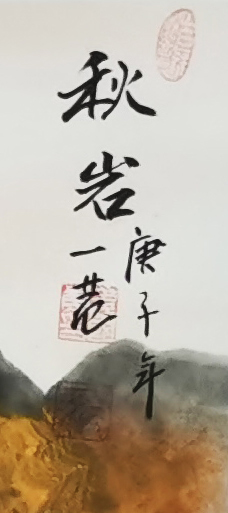 秋岩
庚子年
一